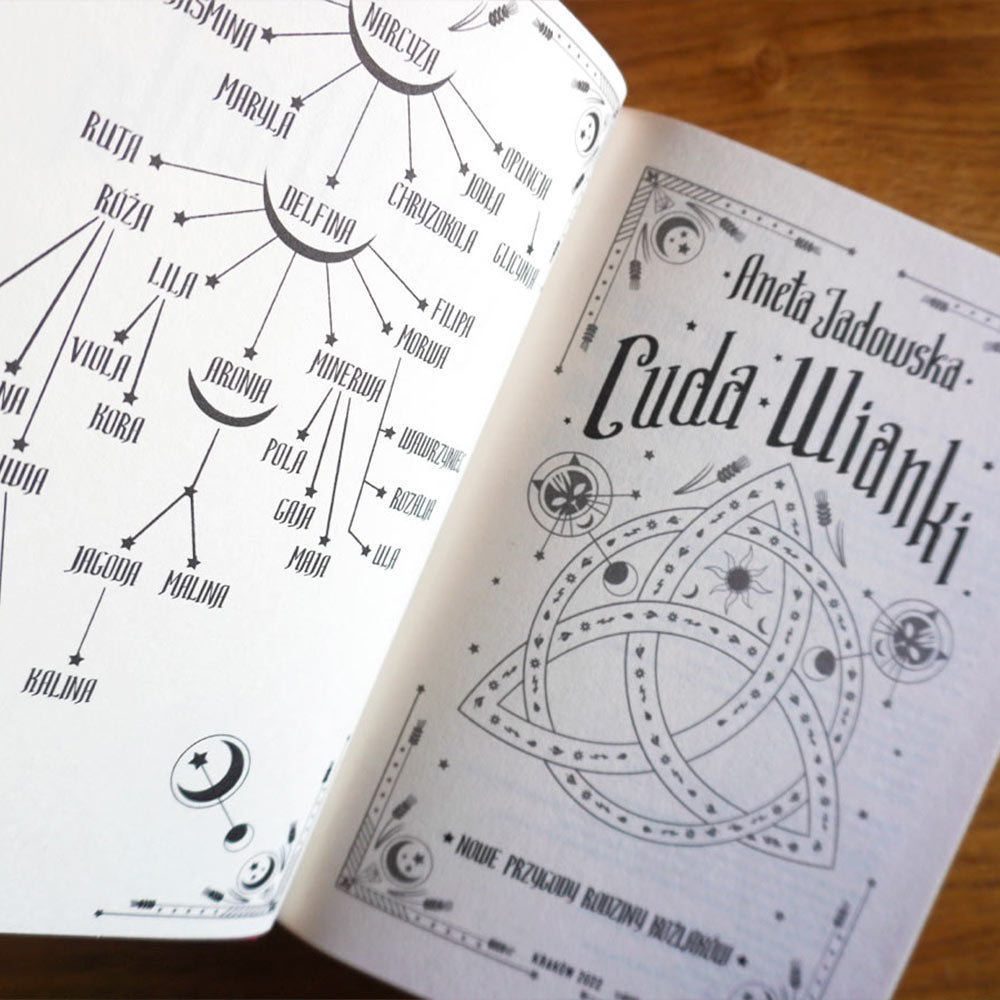 NARCYZA
MARYLA
RUTA
OPUNCJA
JODŁA
CHRYZOKOLA
DELFINA
RÓŻA
GLICYNIA
LILA
FILIPA
MORWA
VIOLA
ARONIA
MINERWA
KORA
POLA
WAWRZYNIEC
GAJA
ROZALIA
MAJA
ULA
JAGODA
MALINA
KALINA
Aneta Jadowska
Cuda Wianki
NOWE PRZYGODY RODZINY KOŹLAKÓW
KRAKÓW 2020